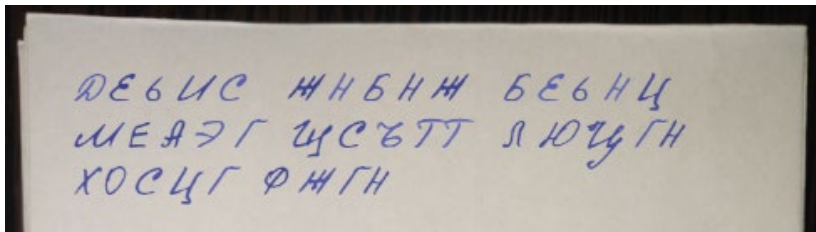 ДЕЬИС ЖНБНЖ БЕЬНЦ
МЕАЭГ ЩСЪТТ ЛЮЧГН
ХОСЦГ ФЖГН